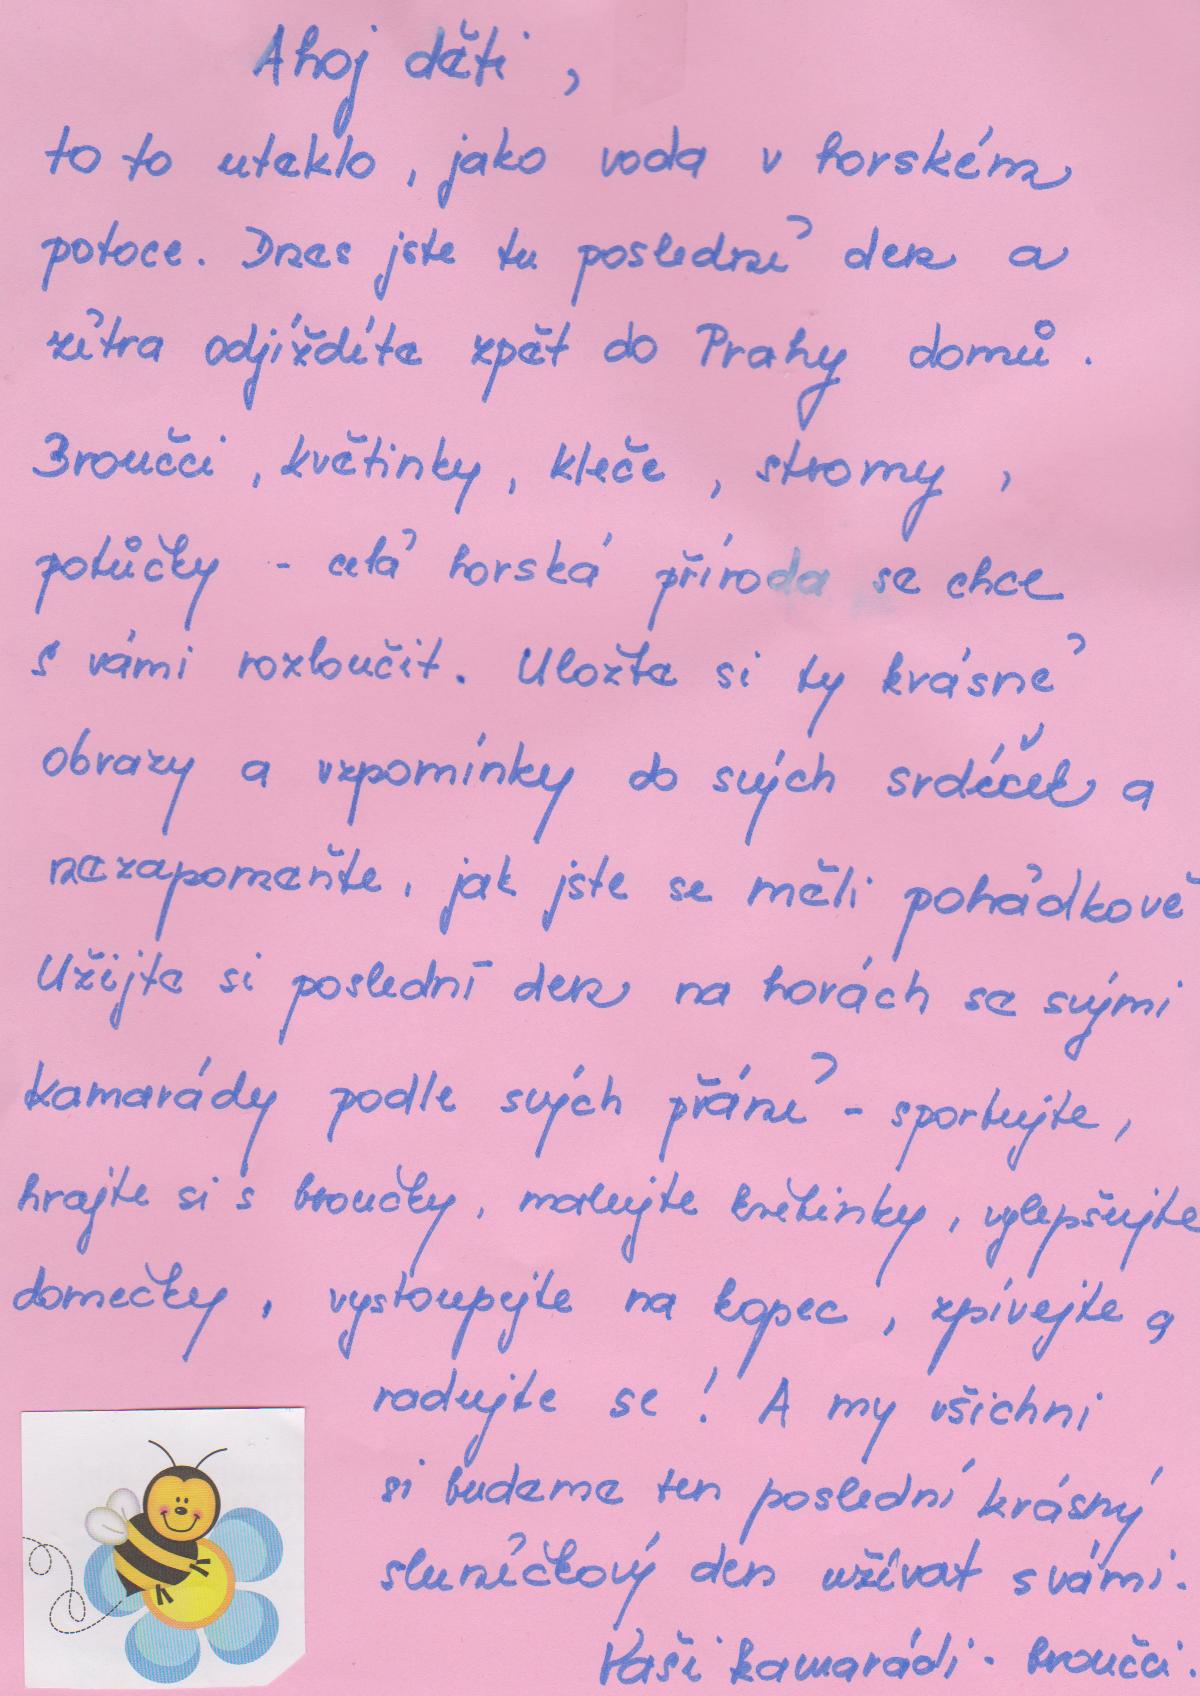 Ahoj děti,
to to uteklo, jako voda v horském
potoce. Dnes jste tu poslední den a
zítra odjíždíte zpět do Prahy domů.
Broučci, květinky, kleče, stromy,
potůčky - celá horská příroda se chce
s vámi rozloučit. Uložte si ty krásné
obrazy a vzpomínky do svých srdéček a
nezapomeňte, jak jste se měli pohádkově
Užijte si poslední den na horách se svými
kamarády podle svých přání - sportujte,
hrajte si s broučky, malujte květinky, vylepšujte
domečky, vystoupejte na kopec, zpívejte a
radujte se! A my všichni
si budeme ten poslední krásný
sluníčkový den užívat s vámi.
Vaši kamarádi - broučci.